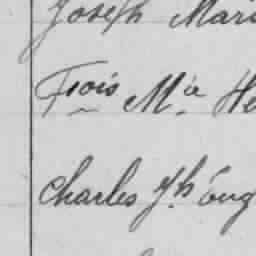 Joseph Mari
Frois Mie He
Charles Jh. Eug